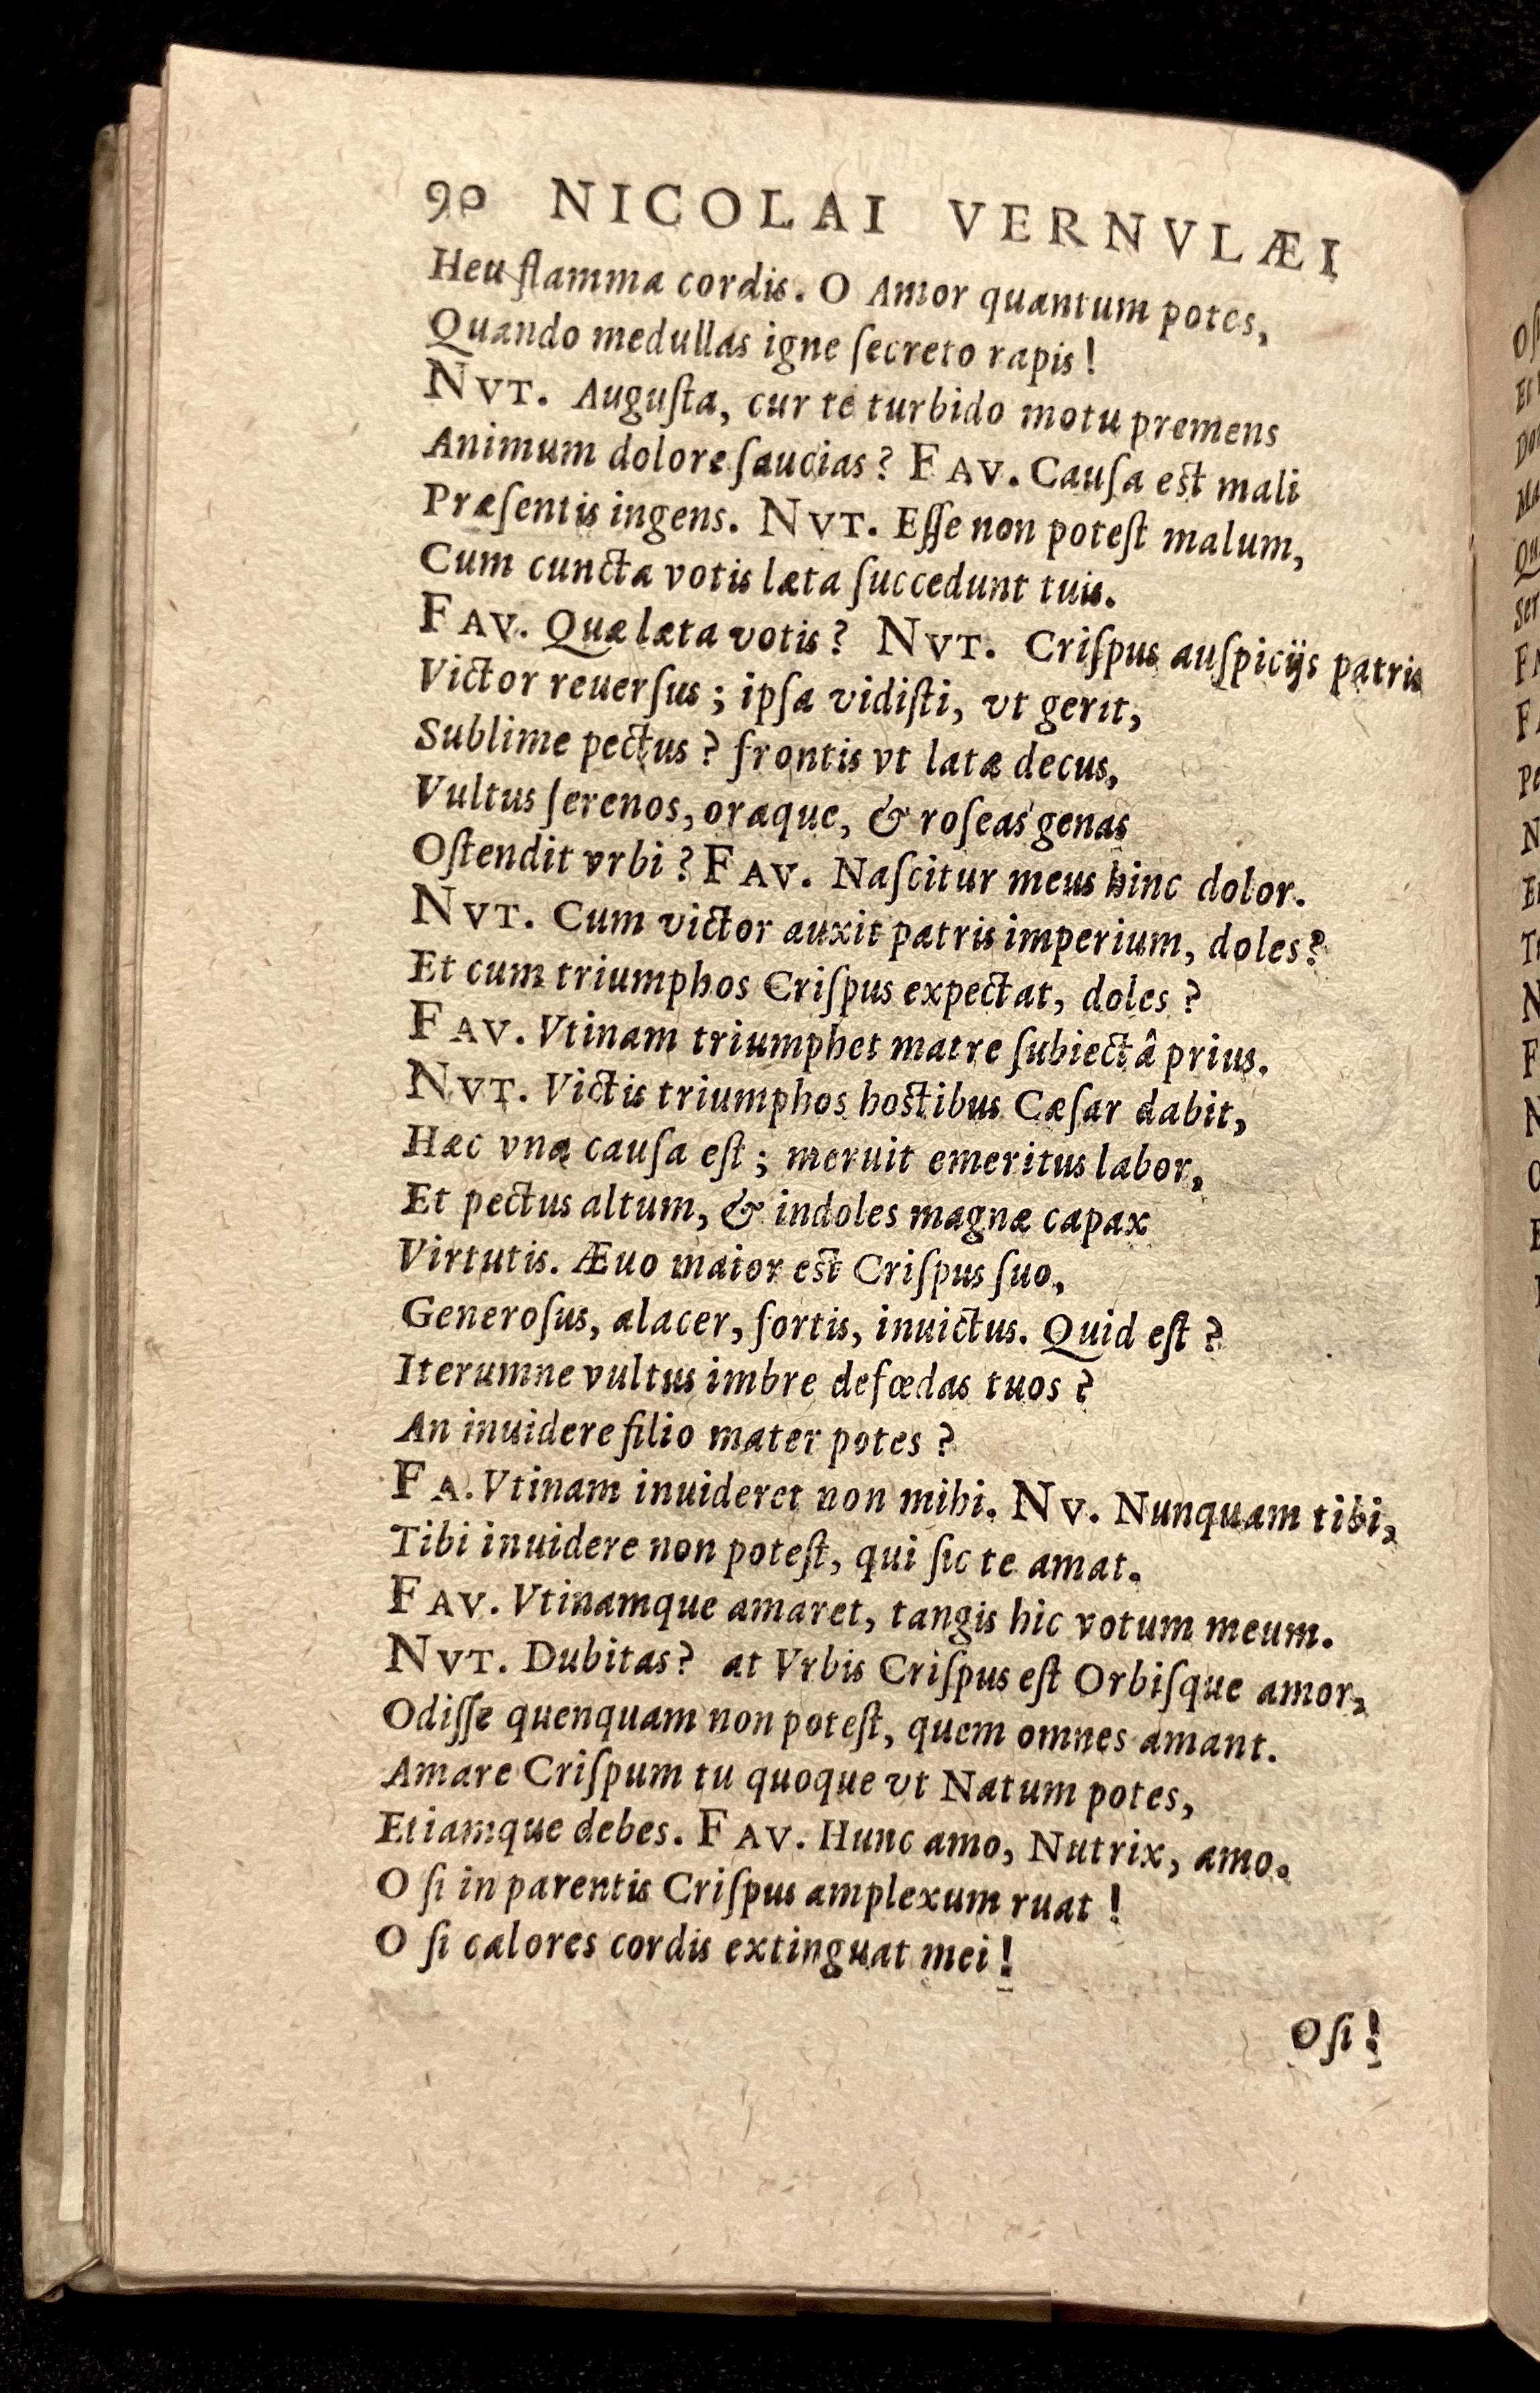 90 NICOLAI VERNVLÆI
Heu flamma cordis. O Amor quantum potes,
Quando medullas igne ſecreto rapis!
NVT. Auguſta, cur te turbido motu premens
Animum dolore ſaucias? FAV. Cauſa est mali
Præſentis ingens. NVT. Eſſe non poteſt malum,
Cum cuncta votis læta ſuccedunt tuis.
FAV. Quæ læta votis? NVT. Criſpus auſpicijs patris
Victor reuerſus; ipſa vidiſti, vt gerit,
Sublime pectus? frontis vt latæ decus,
Vultus ſerenos, oraque, & roſeas genas
Oſtendit vrbi? FAV. Naſcitur meus hinc dolor.
NVT. Cum victor auxit patris imperium, doles?
Et cum triumphos Criſpus expectat, doles?
FAV. Vtinam triumphet matre ſubiectâ prius.
NVT. Victis triumphos hostibus Cæſar dabit,
Hæc vna cauſa eſt; meruit emeritus labor,
Et pectus altum, & indoles magnæ capax
Virtutis. Æuo maior est Criſpus ſuo,
Generoſus, alacer, fortis, inuictus. Quid eſt?
Iterumne vultus imbre defœdas tuos?
An inuidere filio mater potes?
FA. Vtinam inuideret non mihi. NV. Nunquam tibi,
Tibi inuidere non poteſt, qui ſic te amat.
FAV. Vtinamque amaret, tangis hic votum meum.
NVT. Dubitas? at Vrbis Criſpus eſt Orbiſque amor,
Odiſſe quenquam non poteſt, quem omnes amant.
Amare Criſpum tu quoque vt Natum potes,
Etiamque debes. FAV. Hunc amo, Nutrix, amo.
O ſi in parentis Criſpus amplexum ruat!
O ſi calores cordis extinguat mei!
O ſi!